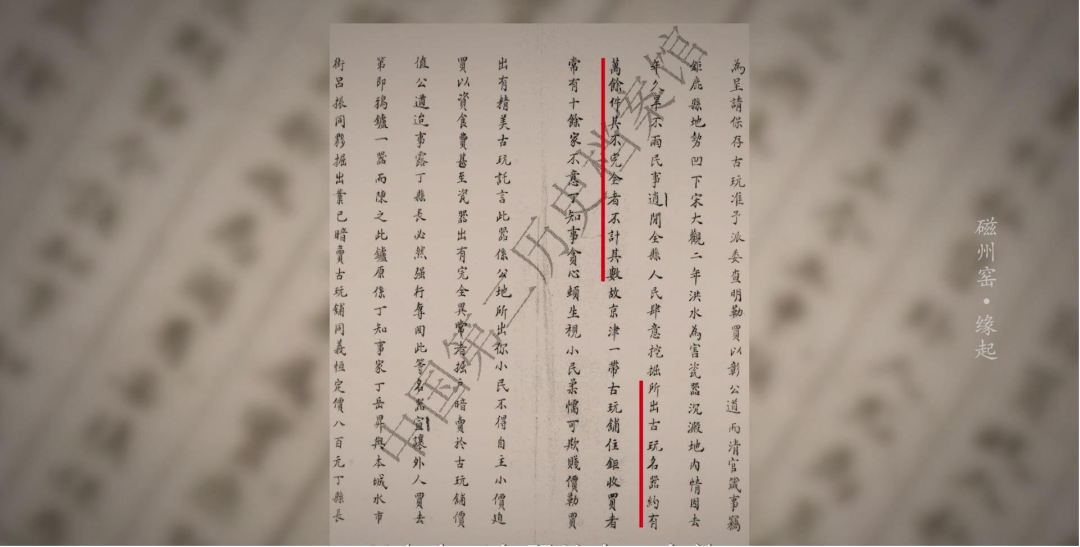 為呈請保存古玩准予派委查明勒買以彰公道而清官箴事竊
鉅鹿縣地勢凹下宋大觀二年洪水為害瓷器沉澱地內情因去
年久旱不雨民事遒閒全縣人民肆意挖掘所出古玩名器約有
萬餘件其不完全者不計其數故京津一帶古玩舖住鉅收買者
常有十餘家不意丁知事貪心頓生視小民柔懦可欺賤價勒買
出有精美古玩託言此器係公地所出你小民不得自主小價迫
買以資食費甚至瓷器出有完全異常者掘戶暗賣於古玩舖價
值公道迨事露丁縣長必然強行奪回此等名器宣讓外人買去
第即鵝鑪一器而陳之此鑪原係丁知事家丁岳昇與本城水市
街呂振同夥掘出業已暗賣古玩舖同義恒定價八百元丁縣長
中国第二历史档案馆
磁州窑·缘起